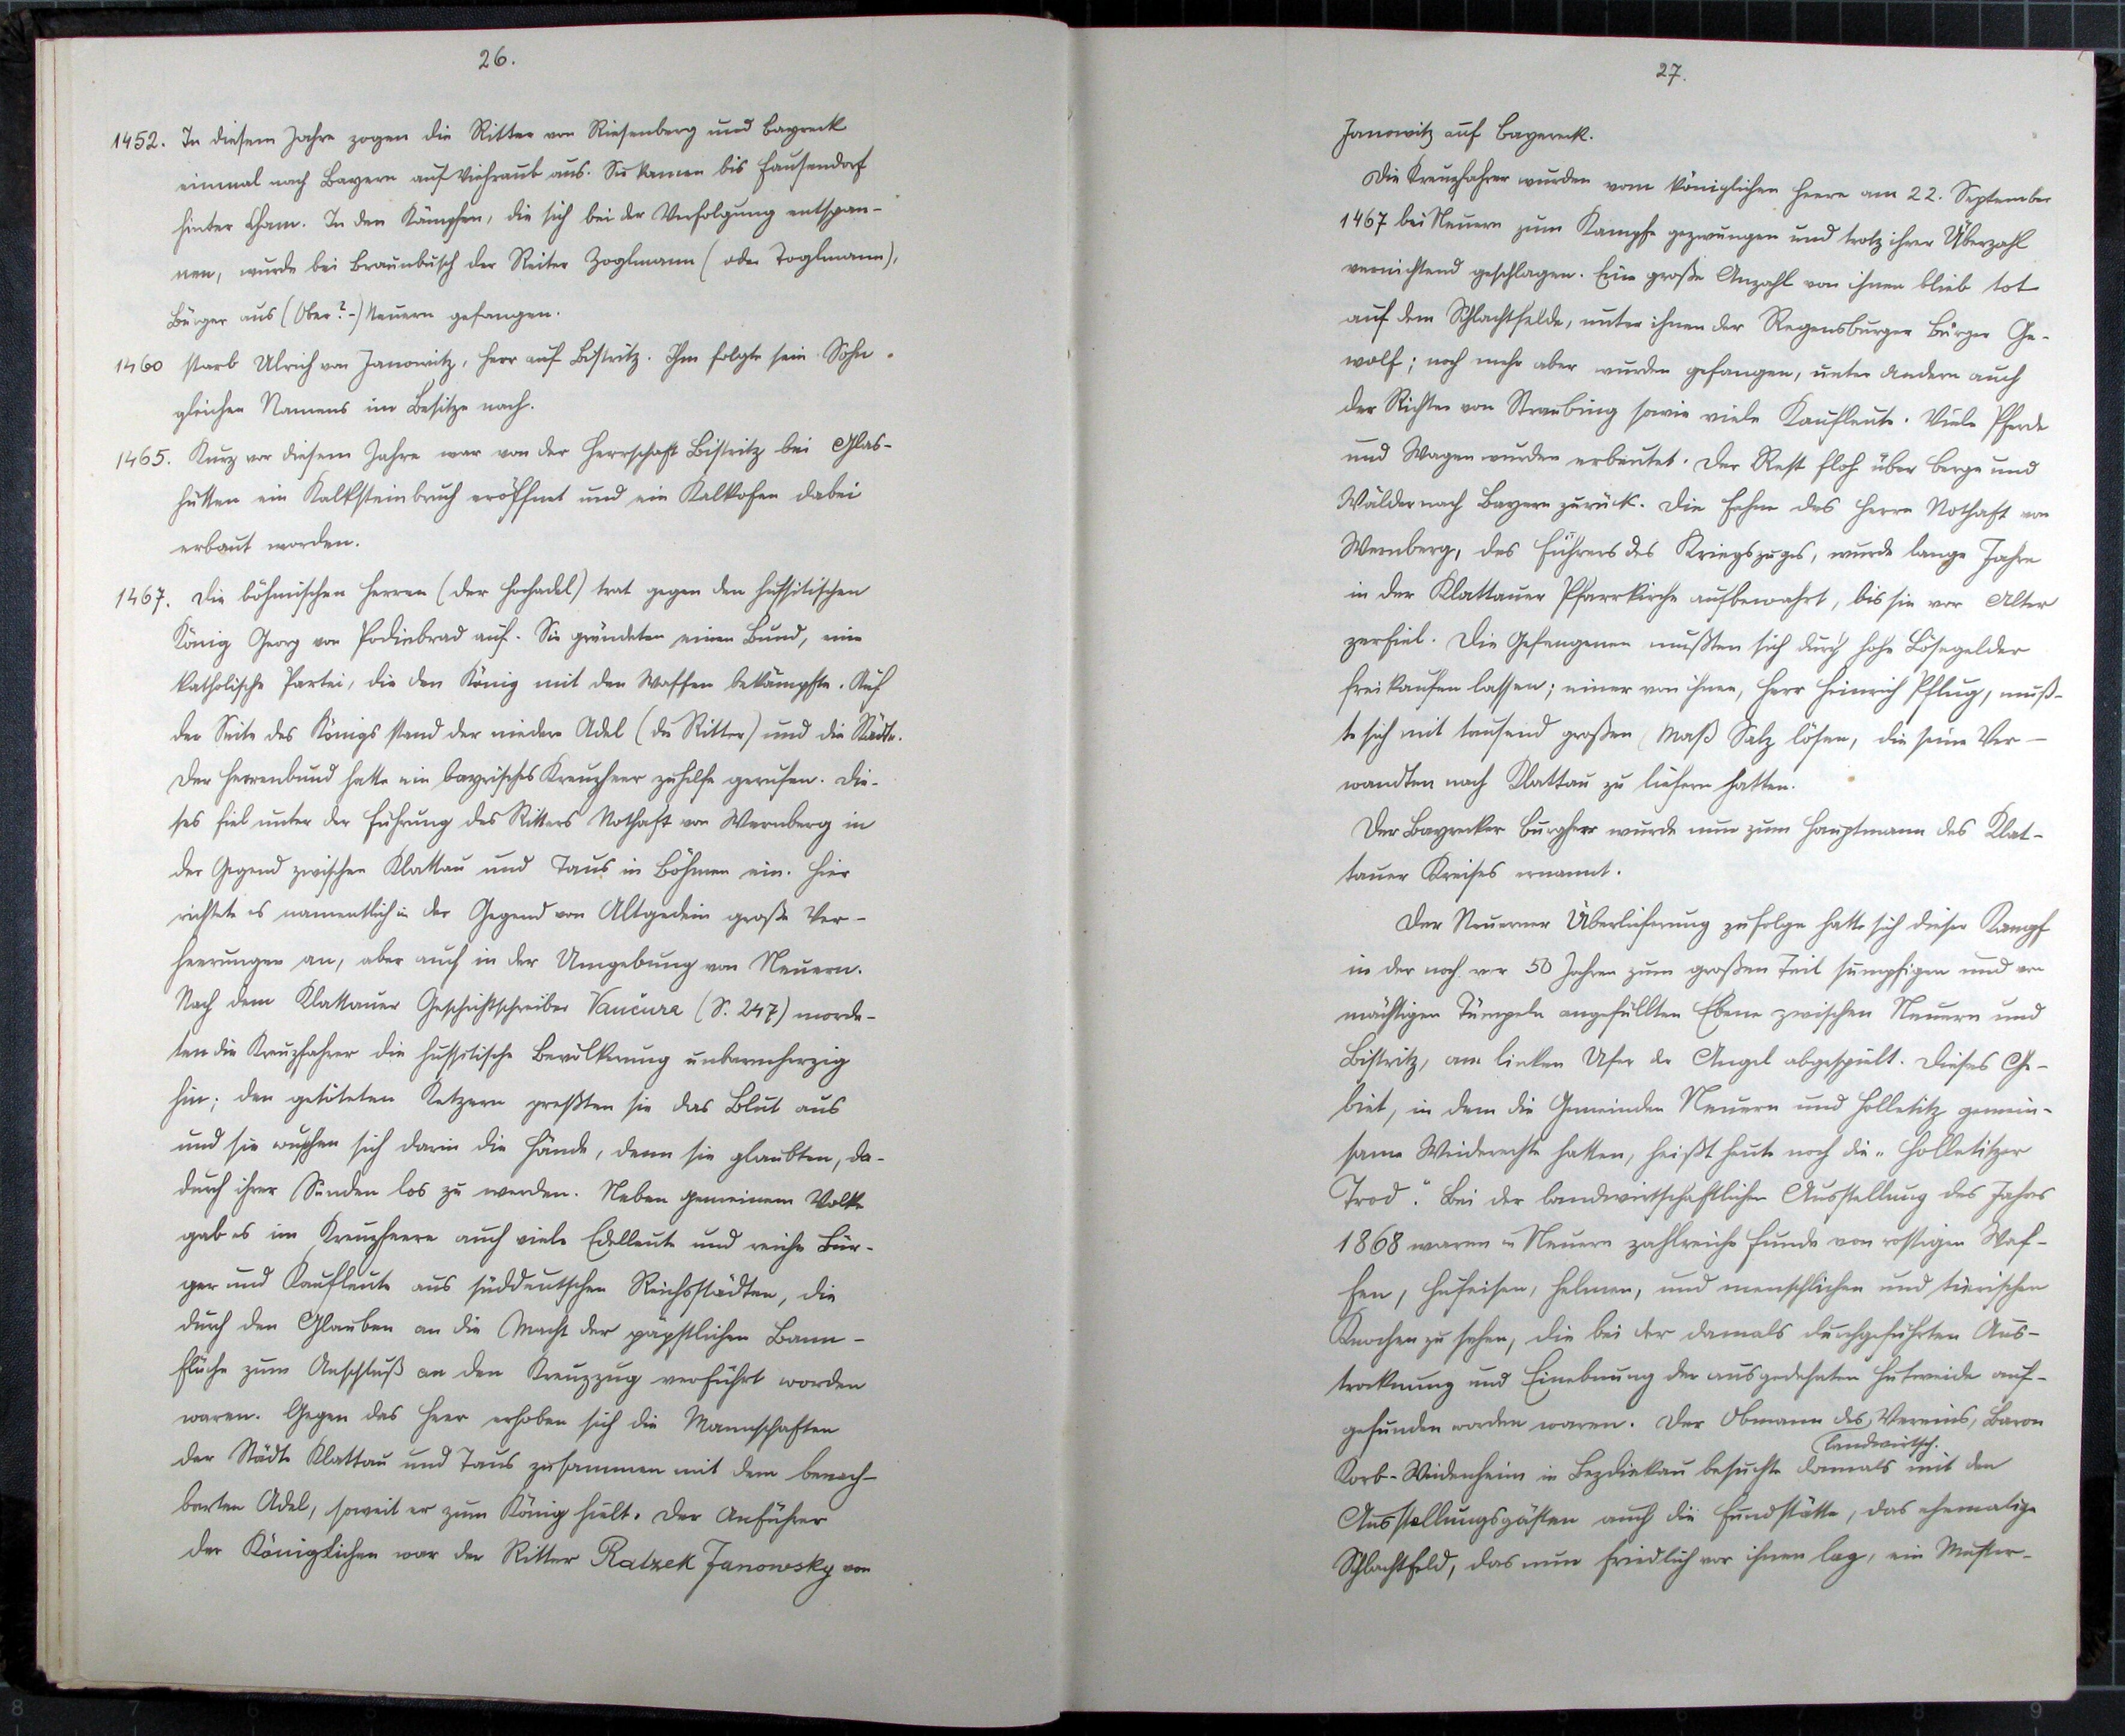 26.
1452. In diesem Jahre zogen die Ritter von Riesenberg und Bayreck
einmal nach Bayern auf Viehraub aus. Sie kamen bis Hausendorf
hinter Cham. In den Kämpfen, die sich bei der Verfolgung entspan-
nen, wurde bei Braunbusch der Reiter Zoglmann (oder Toglmann),
Bürger aus (Ober?-) Neuern gefangen.
1460 starb Ulrich von Janowitz, Herr auf Bistritz. Ihm folgte sein Sohn
gleichen Namens im Besitze nach.
1465. Kurz vor diesem Jahre war von der Herrschaft Bistritz bei Glas-
hütten ein Kalksteinbruch eröffnet und ein Kalkofen dabei
erbaut worden.
1467. Die böhmischen Herren (der Hochadel) trat gegen den hussitischen
König Georg von Podiebrad auf. Sie gründeten einen Bund, eine
katholische Partei, die den König mit den Waffen bekämpfte. Auf
der Seite des Königs stand der niedere Adel (die Ritter) und die Städte.
Der Herrenbund hatte ein bayrisches Kreuzheer zuhilfe gerufen. Die-
ses fiel unter der Führung des Ritters Nothaft von Wernberg in
der Gegend zwischen Klattau und Taus in Böhmen ein. Hier
richtete es namentlich in der Gegend von Altgedein große Ver-
heerungen an, aber auch in der Umgebung von Neuern.
Nach dem Klattauer Geschichtschreiber Vančura (S. 247) morde-
ten die Kreuzfahrer die hussitische Bevölkerung unbarmherzig
hin; den getöteten Ketzern preßten sie das Blut aus
und sie wuschen sich darin die Hände, denn sie glaubten, da-
durch ihrer Sünden los zu werden. Neben gemeinem Volke
gab es im Kreuzheere auch viele Edelleute und reiche Bür-
ger und Kaufleute aus süddeutschen Reichsstädten, die
durch den Glauben an die Macht der päpstlichen Bann-
flüche zum Anschluß an den Kreuzzug verführt worden
waren. Gegen das Heer erhoben sich die Mannschaften
der Städte Klattau und Taus zusammen mit dem benach-
barten Adel, soweit er zum König hielt. Der Anführer
der Königlichen war der Ritter Ratzek Janowsky von
27.
Janowitz auf Bayereck.
Die Kreuzfahrer wurden vom königlichen Heere am 22. September
1467 bei Neuern zum Kampfe gezwungen und trotz ihrer Überzahl
vernichtend geschlagen. Eine große Anzahl von ihnen blieb tot
auf dem Schlachtfelde, unter ihnen der Regensburger Bürger Ge-
wolf; noch mehr aber wurden gefangen, unter andern auch
der Richter von Straubing sowie viele Kaufleute. Viele Pferde
und Wagen wurden erbeutet. Der Rest floh über Berge und
Wälder nach Bayern zurück. Die Fahne des Herrn Nothaft von
Wernberg, des Führers des Kriegszuges, wurde lange Jahre
in der Klattauer Pfarrkirche aufbewahrt, bis sie vor Alter
zerfiel. Die Gefangenen mußten sich durch hohe Lösegelder
freikaufen lassen; einer von ihnen, Herr Heinrich Pflug, muß-
te sich mit tausend großen Maß Salz lösen, die seine Ver-
wandten nach Klattau zu liefern hatten.
Der Bayrecker Burgherr wurde nun zum Hauptmann des Klat-
tauer Kreises ernannt.
Der Neuerner Überlieferung zufolge hatte sich dieser Kampf
in der noch vor 50 Jahren zum großen Teil sumpfigen und von
mächtigen Tümpeln angefüllten Ebene zwischen Neuern und
Bistritz, am linken Ufer der Angel abgespielt. Dieses Ge-
biet, in dem die Gemeinden Neuern und Holletitz gemein-
same Weiderechte hatten, heißt heute noch die „Holletitzer
Trod". Bei der landwirtschaftlichen Ausstellung des Jahres
1868 waren in Neuern zahlreiche Funde von rostigen Waf-
fen, Hufeisen, Helmen, und menschlichen und tierischen
Knochen zu sehen, die bei der damals durchgeführten Aus-
trocknung und Einebnung der ausgedehnten Hutweide auf-
gefunden worden waren. Der Obmann des landwirtsch. Vereins, Baron
Korb-Weidenheim in Bezdiekau besuchte damals mit den
Ausstellungsgästen auch die Fundstätte, das ehemalige
Schlachtfeld, das nun friedlich vor ihnen lag, ein Muster-